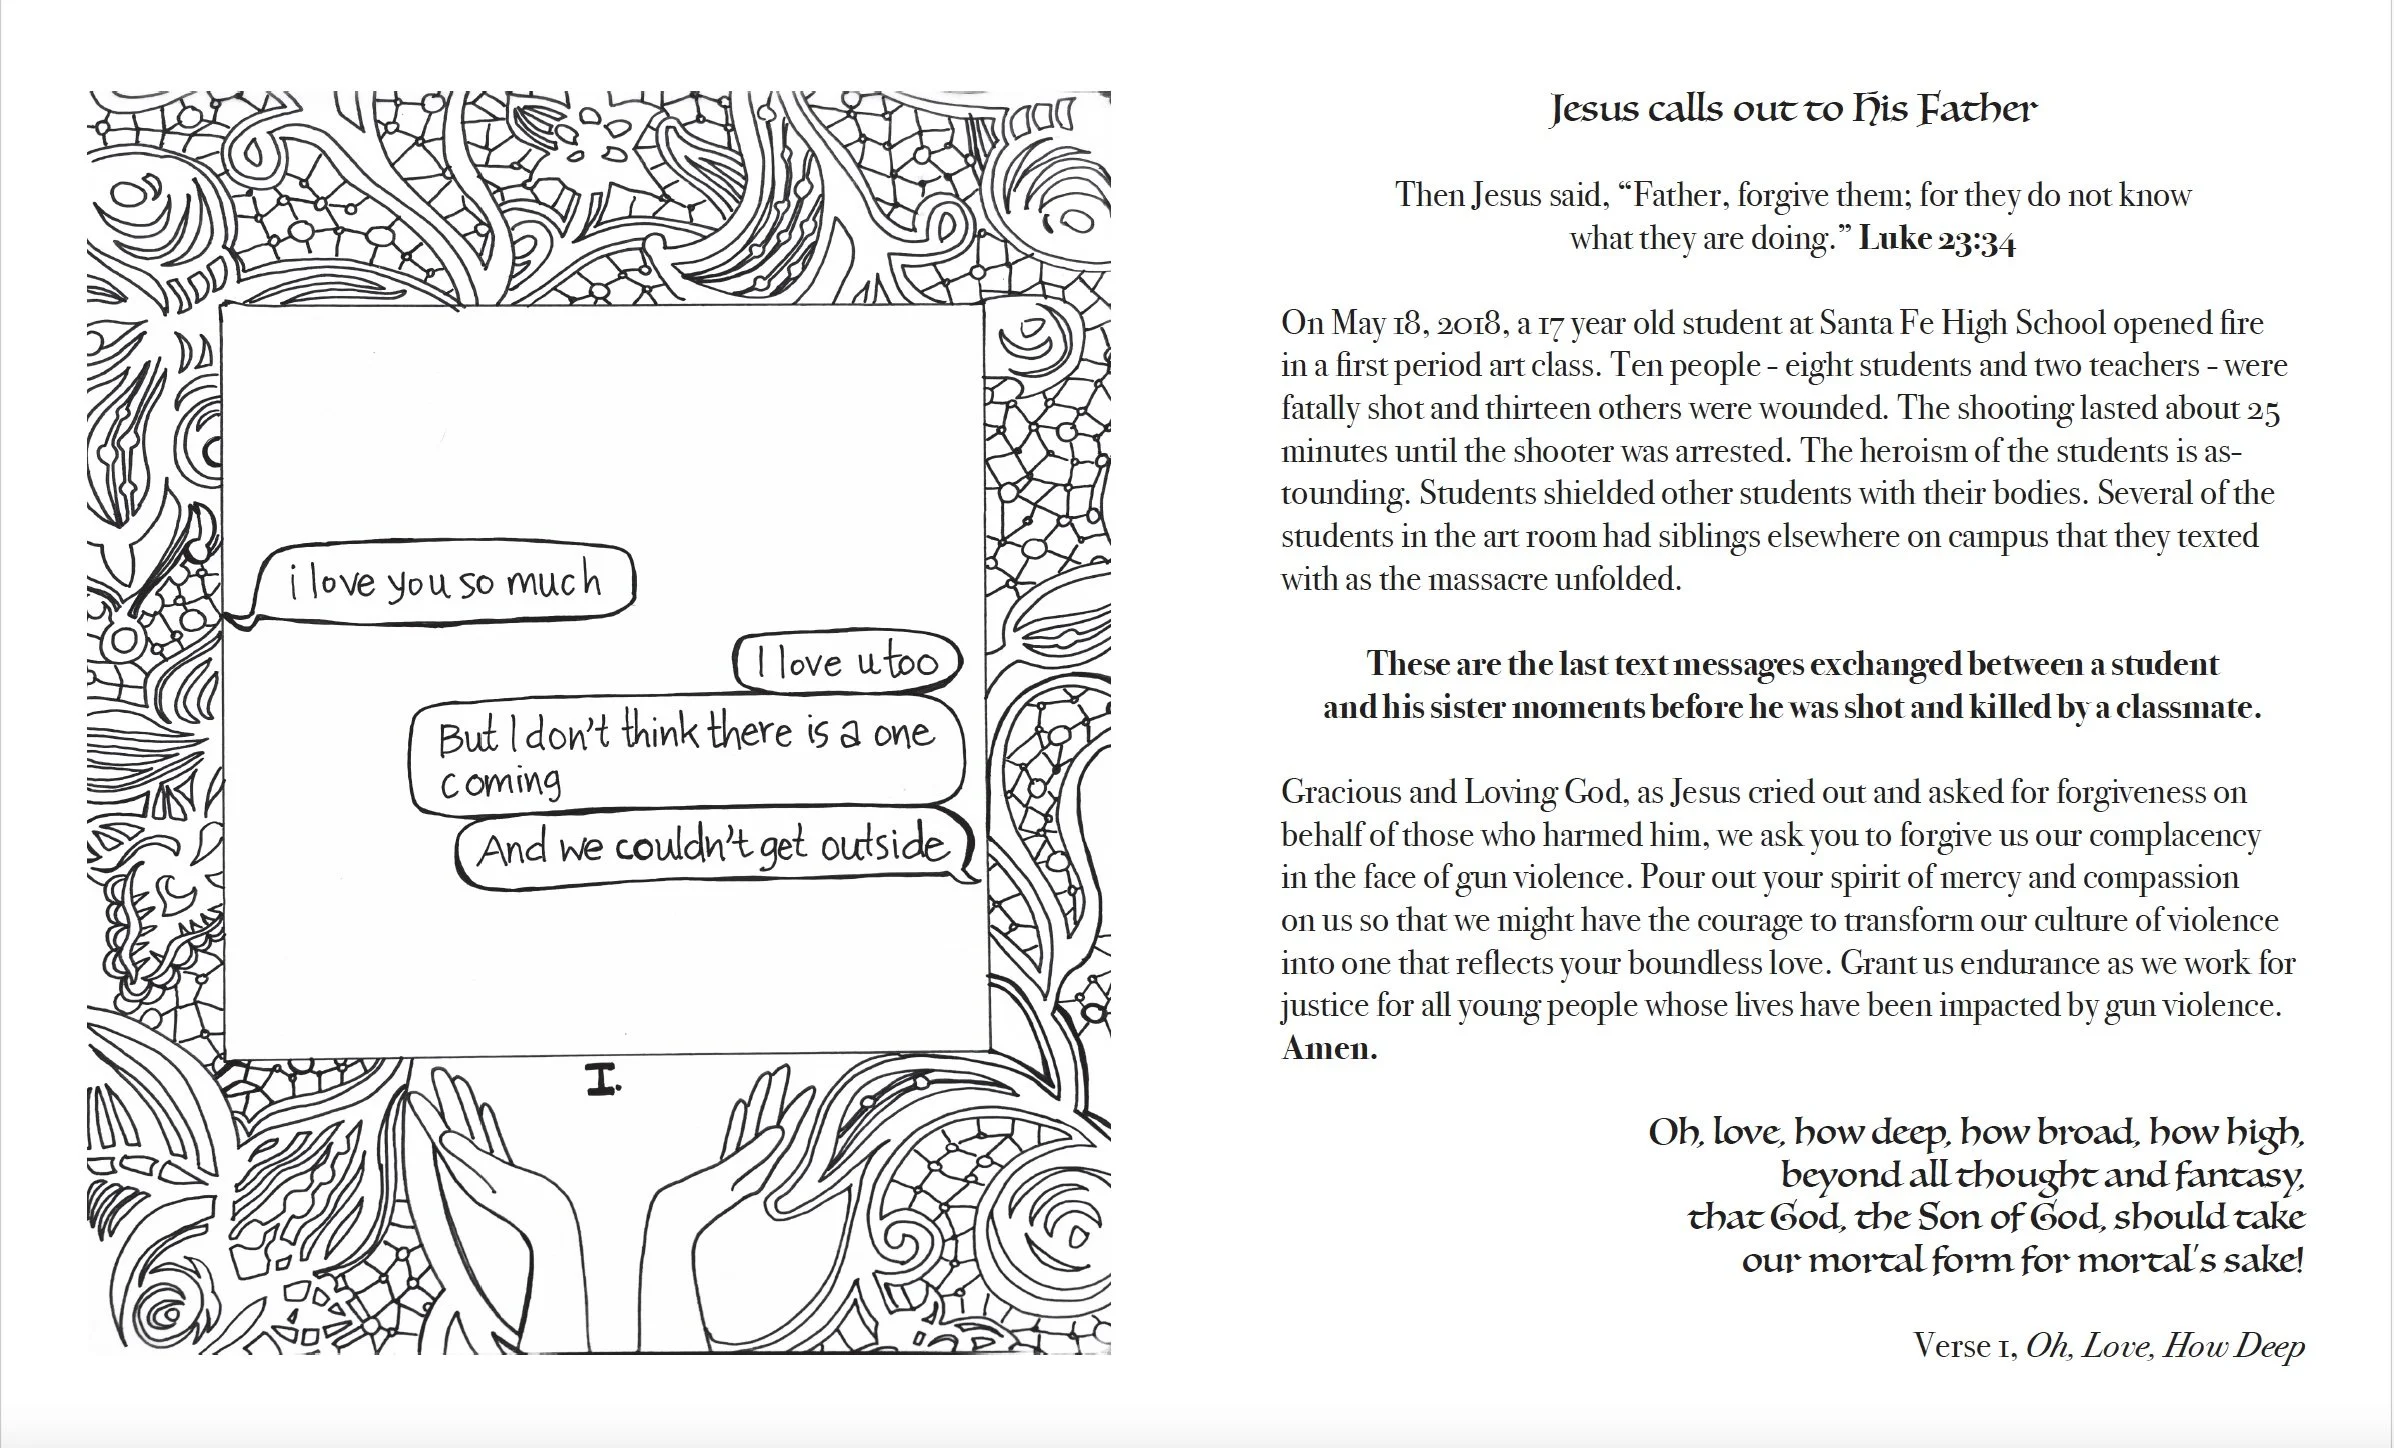 i love you so much
I love u too
But I don't think there is a one
coming
And we couldn't get outside
I.
Jesus calls out to His Father
Then Jesus said, “Father, forgive them; for they do not know
what they are doing.” Luke 23:34
On May 18, 2018, a 17 year old student at Santa Fe High School opened fire
in a first period art class. Ten people - eight students and two teachers - were
fatally shot and thirteen others were wounded. The shooting lasted about 25
minutes until the shooter was arrested. The heroism of the students is as-
tounding. Students shielded other students with their bodies. Several of the
students in the art room had siblings elsewhere on campus that they texted
with as the massacre unfolded.
These are the last text messages exchanged between a student
and his sister moments before he was shot and killed by a classmate.
Gracious and Loving God, as Jesus cried out and asked for forgiveness on
behalf of those who harmed him, we ask you to forgive us our complacency
in the face of gun violence. Pour out your spirit of mercy and compassion
on us so that we might have the courage to transform our culture of violence
into one that reflects your boundless love. Grant us endurance as we work for
justice for all young people whose lives have been impacted by gun violence.
Amen.
Oh, love, how deep, how broad, how high,
beyond all thought and fantasy,
that God, the Son of God, should take
our mortal form for mortal's sake!
Verse 1, Oh, Love, How Deep